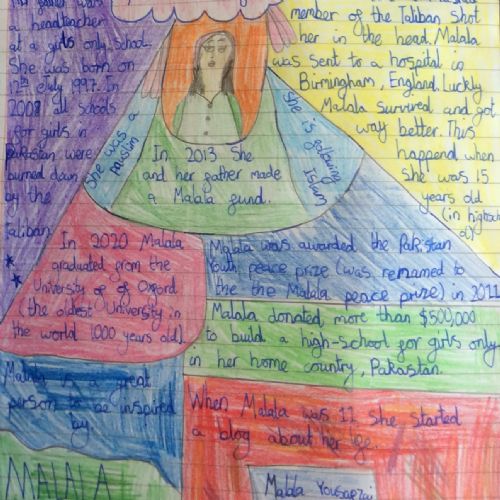 Her father was
a headteacher
at a girls only school.
She was born on
12th July 1997. In
2008 all schools
for girls in
pakistan were
burned down
by the
taliban.
member of the Taliban shot
her in the head. Malala
was sent to a hospital in
Birmingham, England. Luckly
Malala survived and got
way better. This
happend when
she was 15
years old
(in
She was a
muslim
She is following
islam
In 2013 she
and her father made
a Malala fund.
In 2020 Malala
graduated from the
University of of Oxford
(the oldest University in
the world 1000 years old).
Malala was awarded the Pakistan
Youth peace prize (was renamed to
the the Malala peace prize) in 2011
Malala donated more than $500,000
to build a high-school for girls only
in her home country, Pakastan.
Malala is a great
person to be inspired
by
When Malala was 11 she started
a blog about her life.
MALALA
Malala Yousafzai